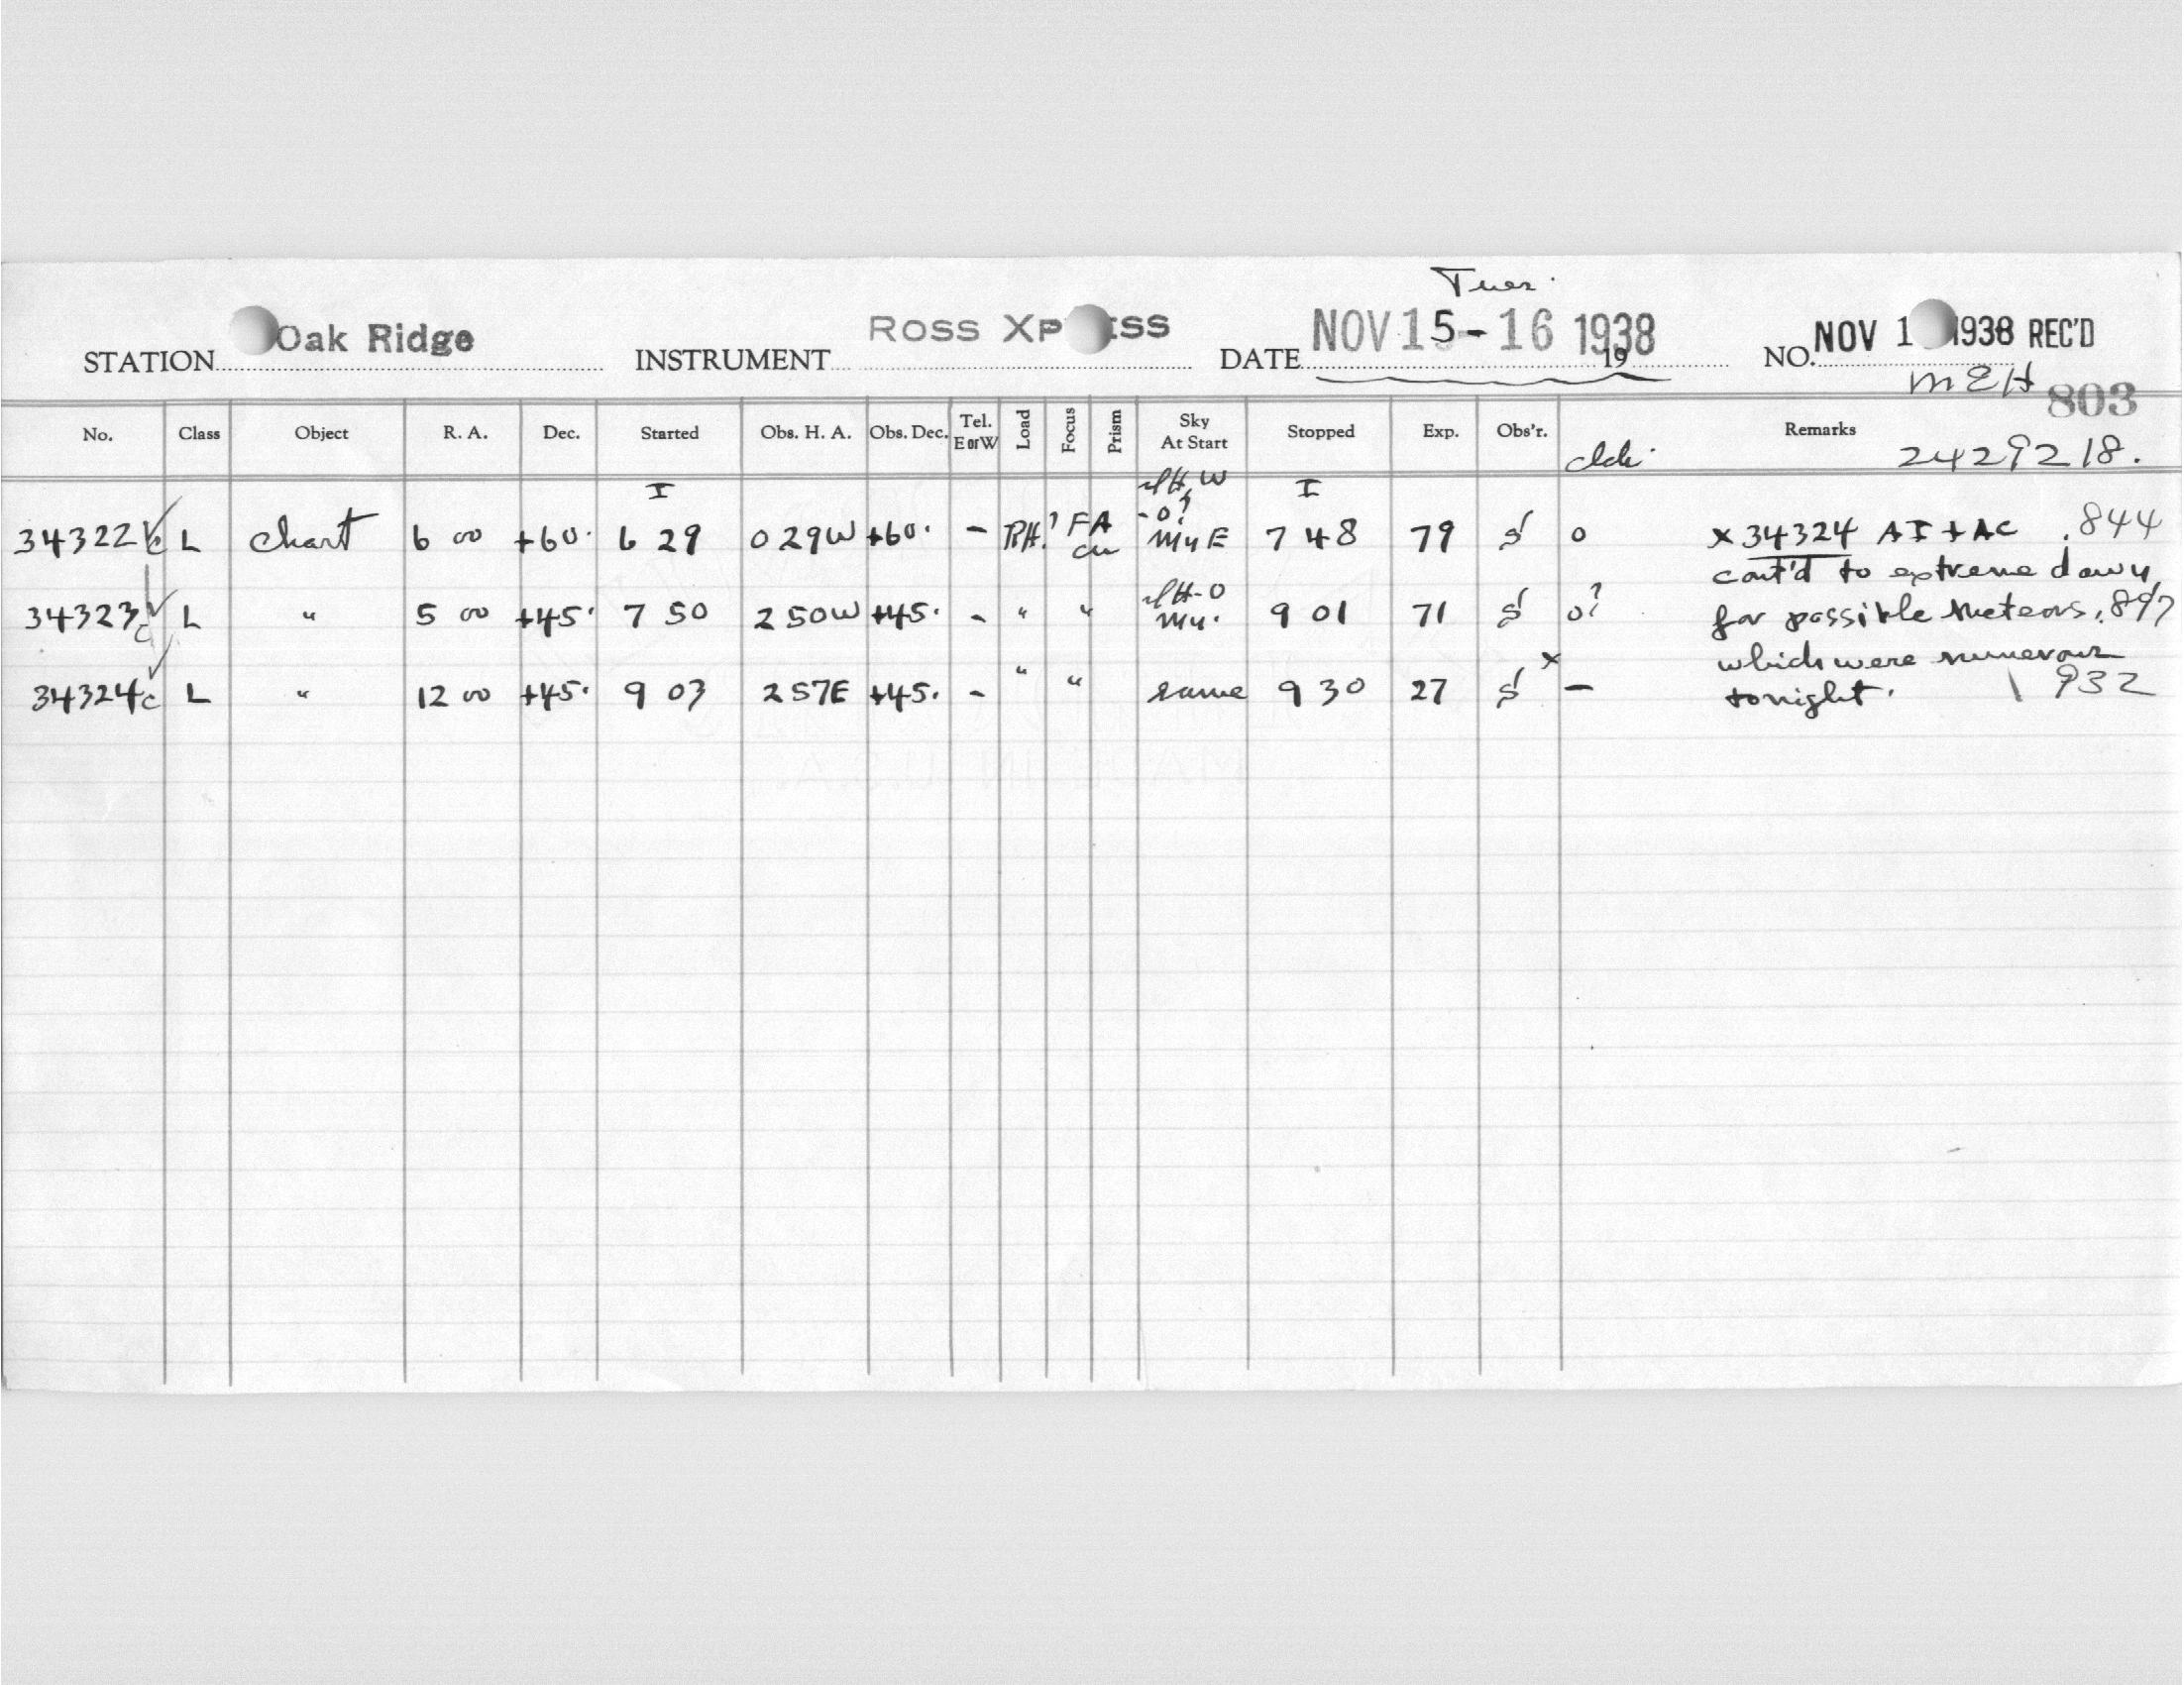 Tues.
STATION Oak Ridge INSTRUMENT ROSS XP SS DATE NOV 15-16 1938 19 NO. NOV 1 1938 REC'D
MEH 803
No. Class Object R. A. Dec. Started Obs. H. A. Obs. Dec. Tel. E or W Load Focus Prism Sky At Start Stopped Exp. Obs'r. Remarks
2429218.
I I
34322 c L chart 6 00 +60. 6 29 0 29W +60. - RH. FA My E 7 48 79 S 0 x 34324 AI + AC .844
cont'd to extreme dawn
34323 c L " 5 00 +45. 7 50 2 50W +45. - " " My. 9 01 71 S 0? for possible meteors, .897
which were numerous
34324 c L " 12 00 +45. 9 03 2 57E +45. - " " same 9 30 27 S x - tonight. 932